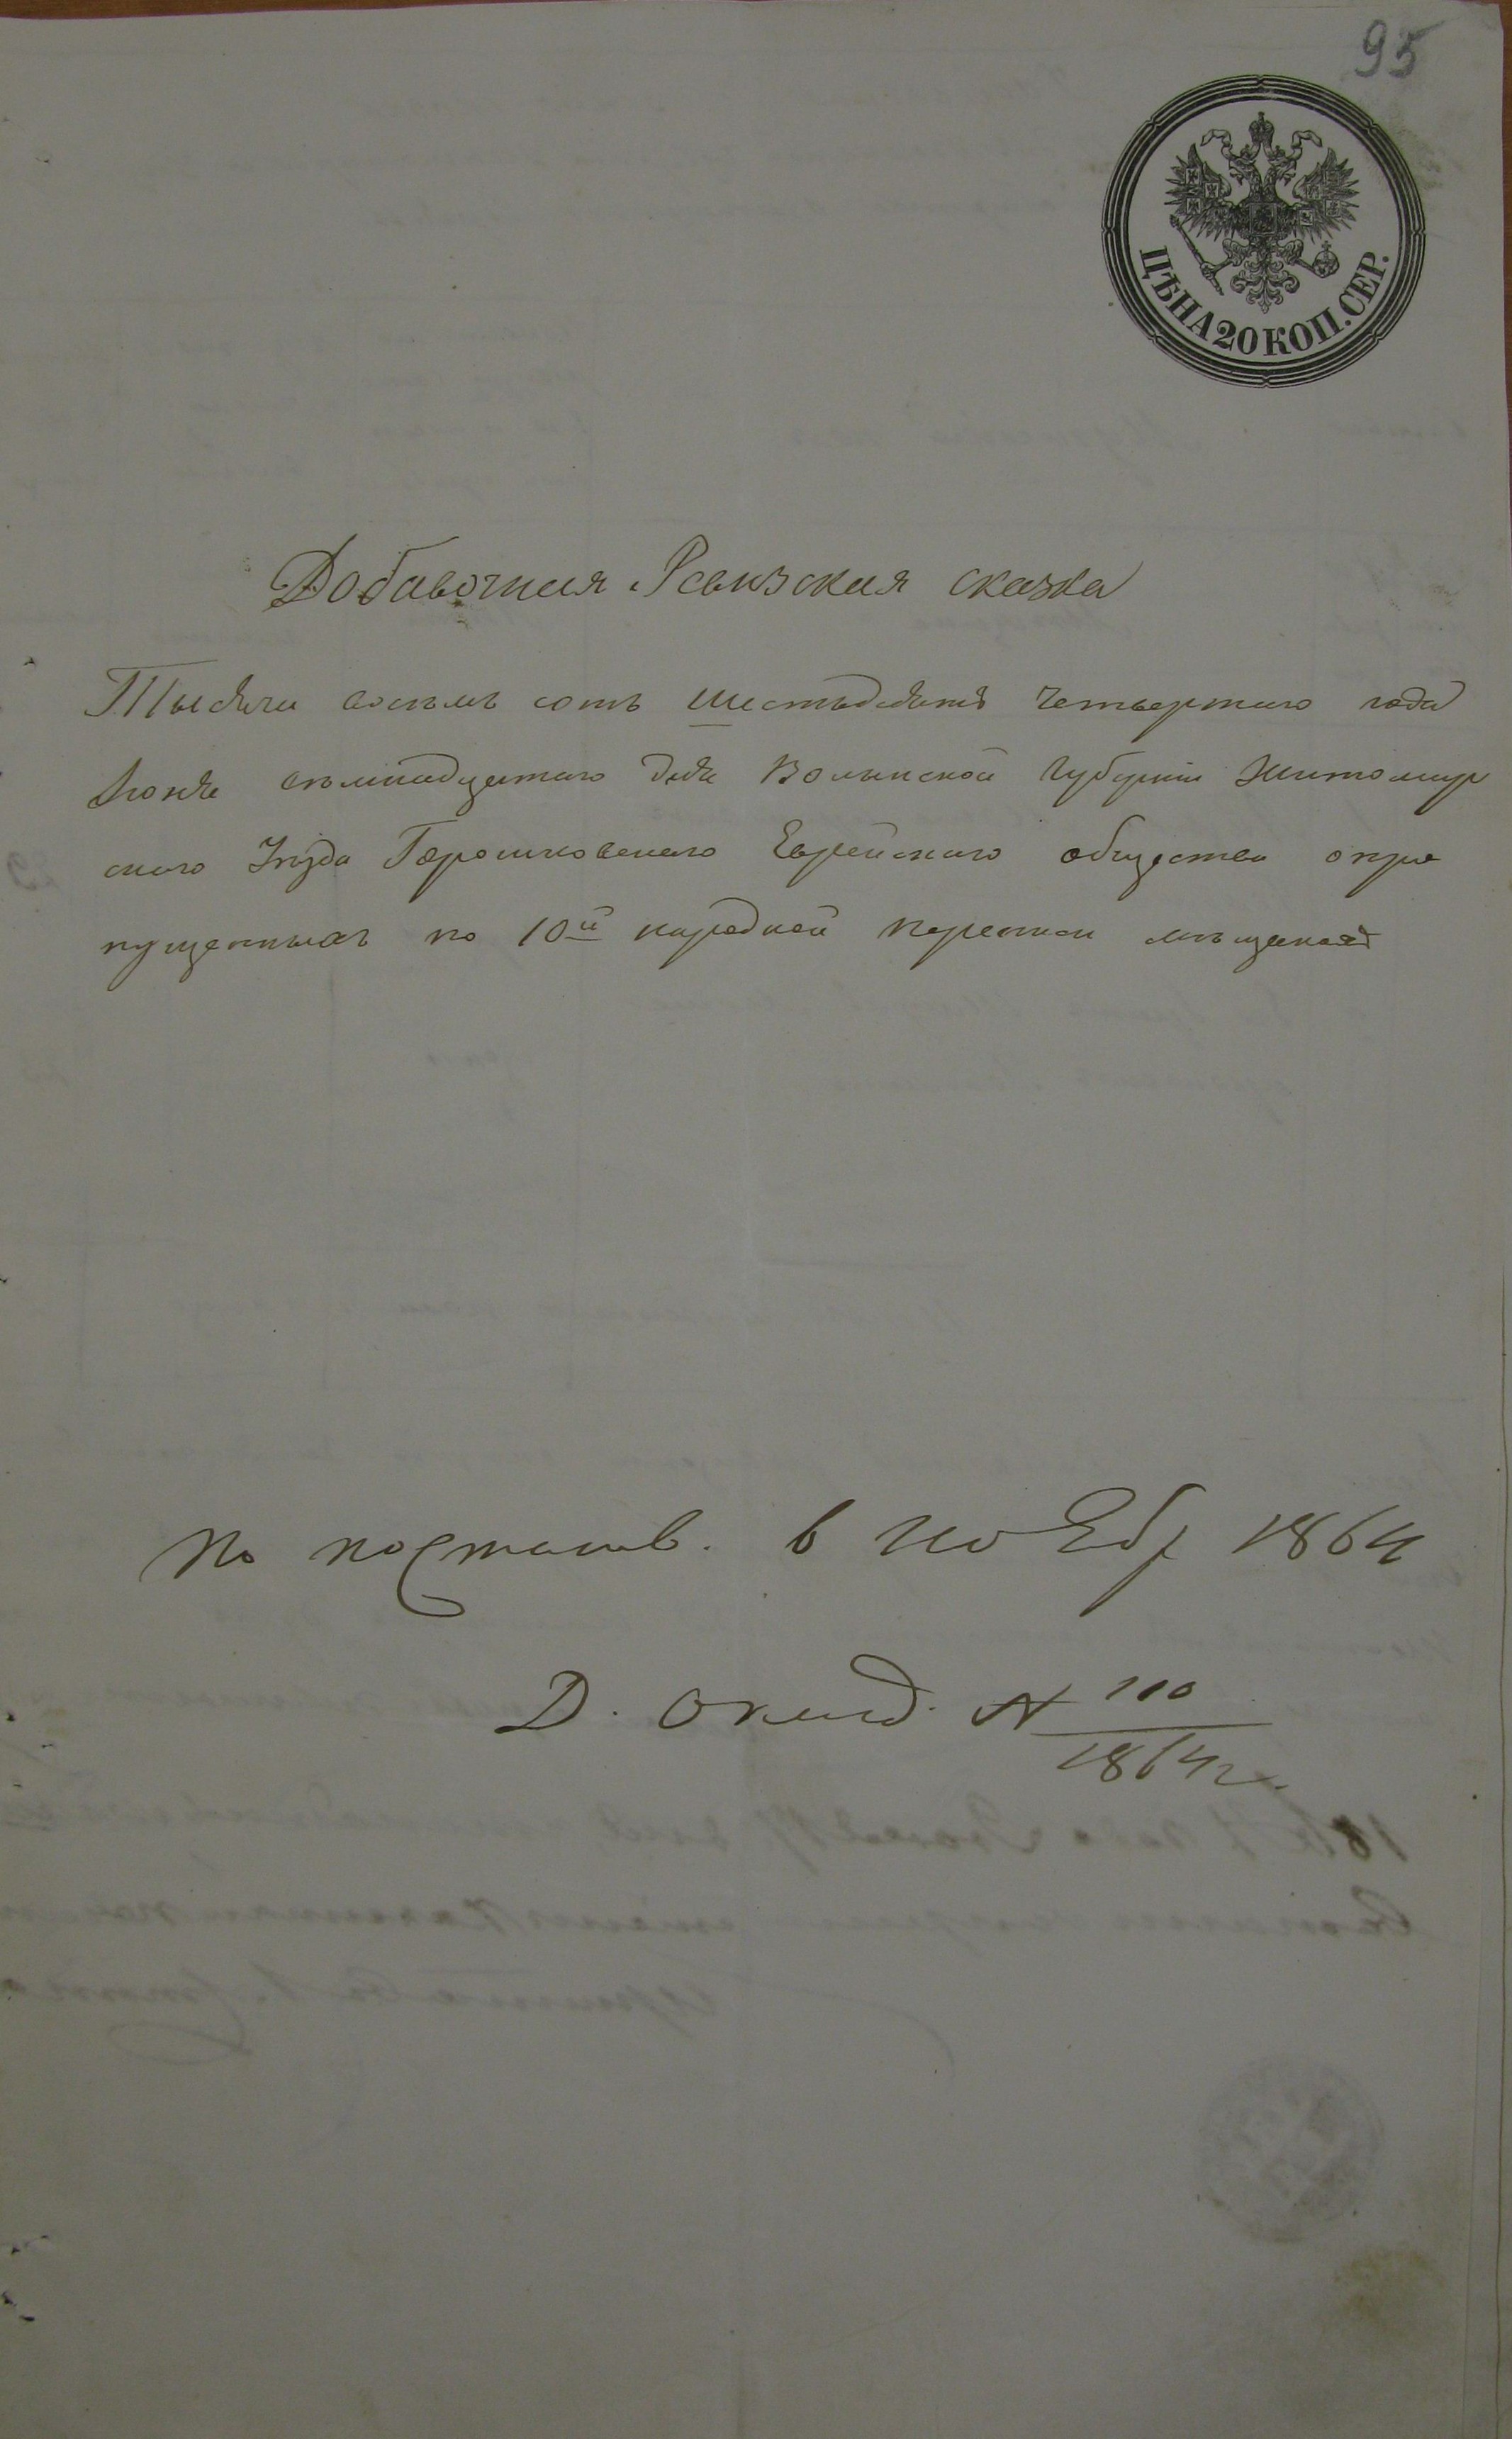 95
ЦѢНА 20 КОП. СЕР.
Добавочная Ревизская сказка
Тысяча восемь сотъ шестьдесятъ четвертого года
Іюня семнадцатаго дня Волынской Губерніи Житомир
скаго Уезда Горошковскаго Еврейскаго общества о про
пущенныхъ по 10й народной переписи мещанахъ
По постанов. в Ноябр 1864
Д. Оклад. № 110
1864 г.